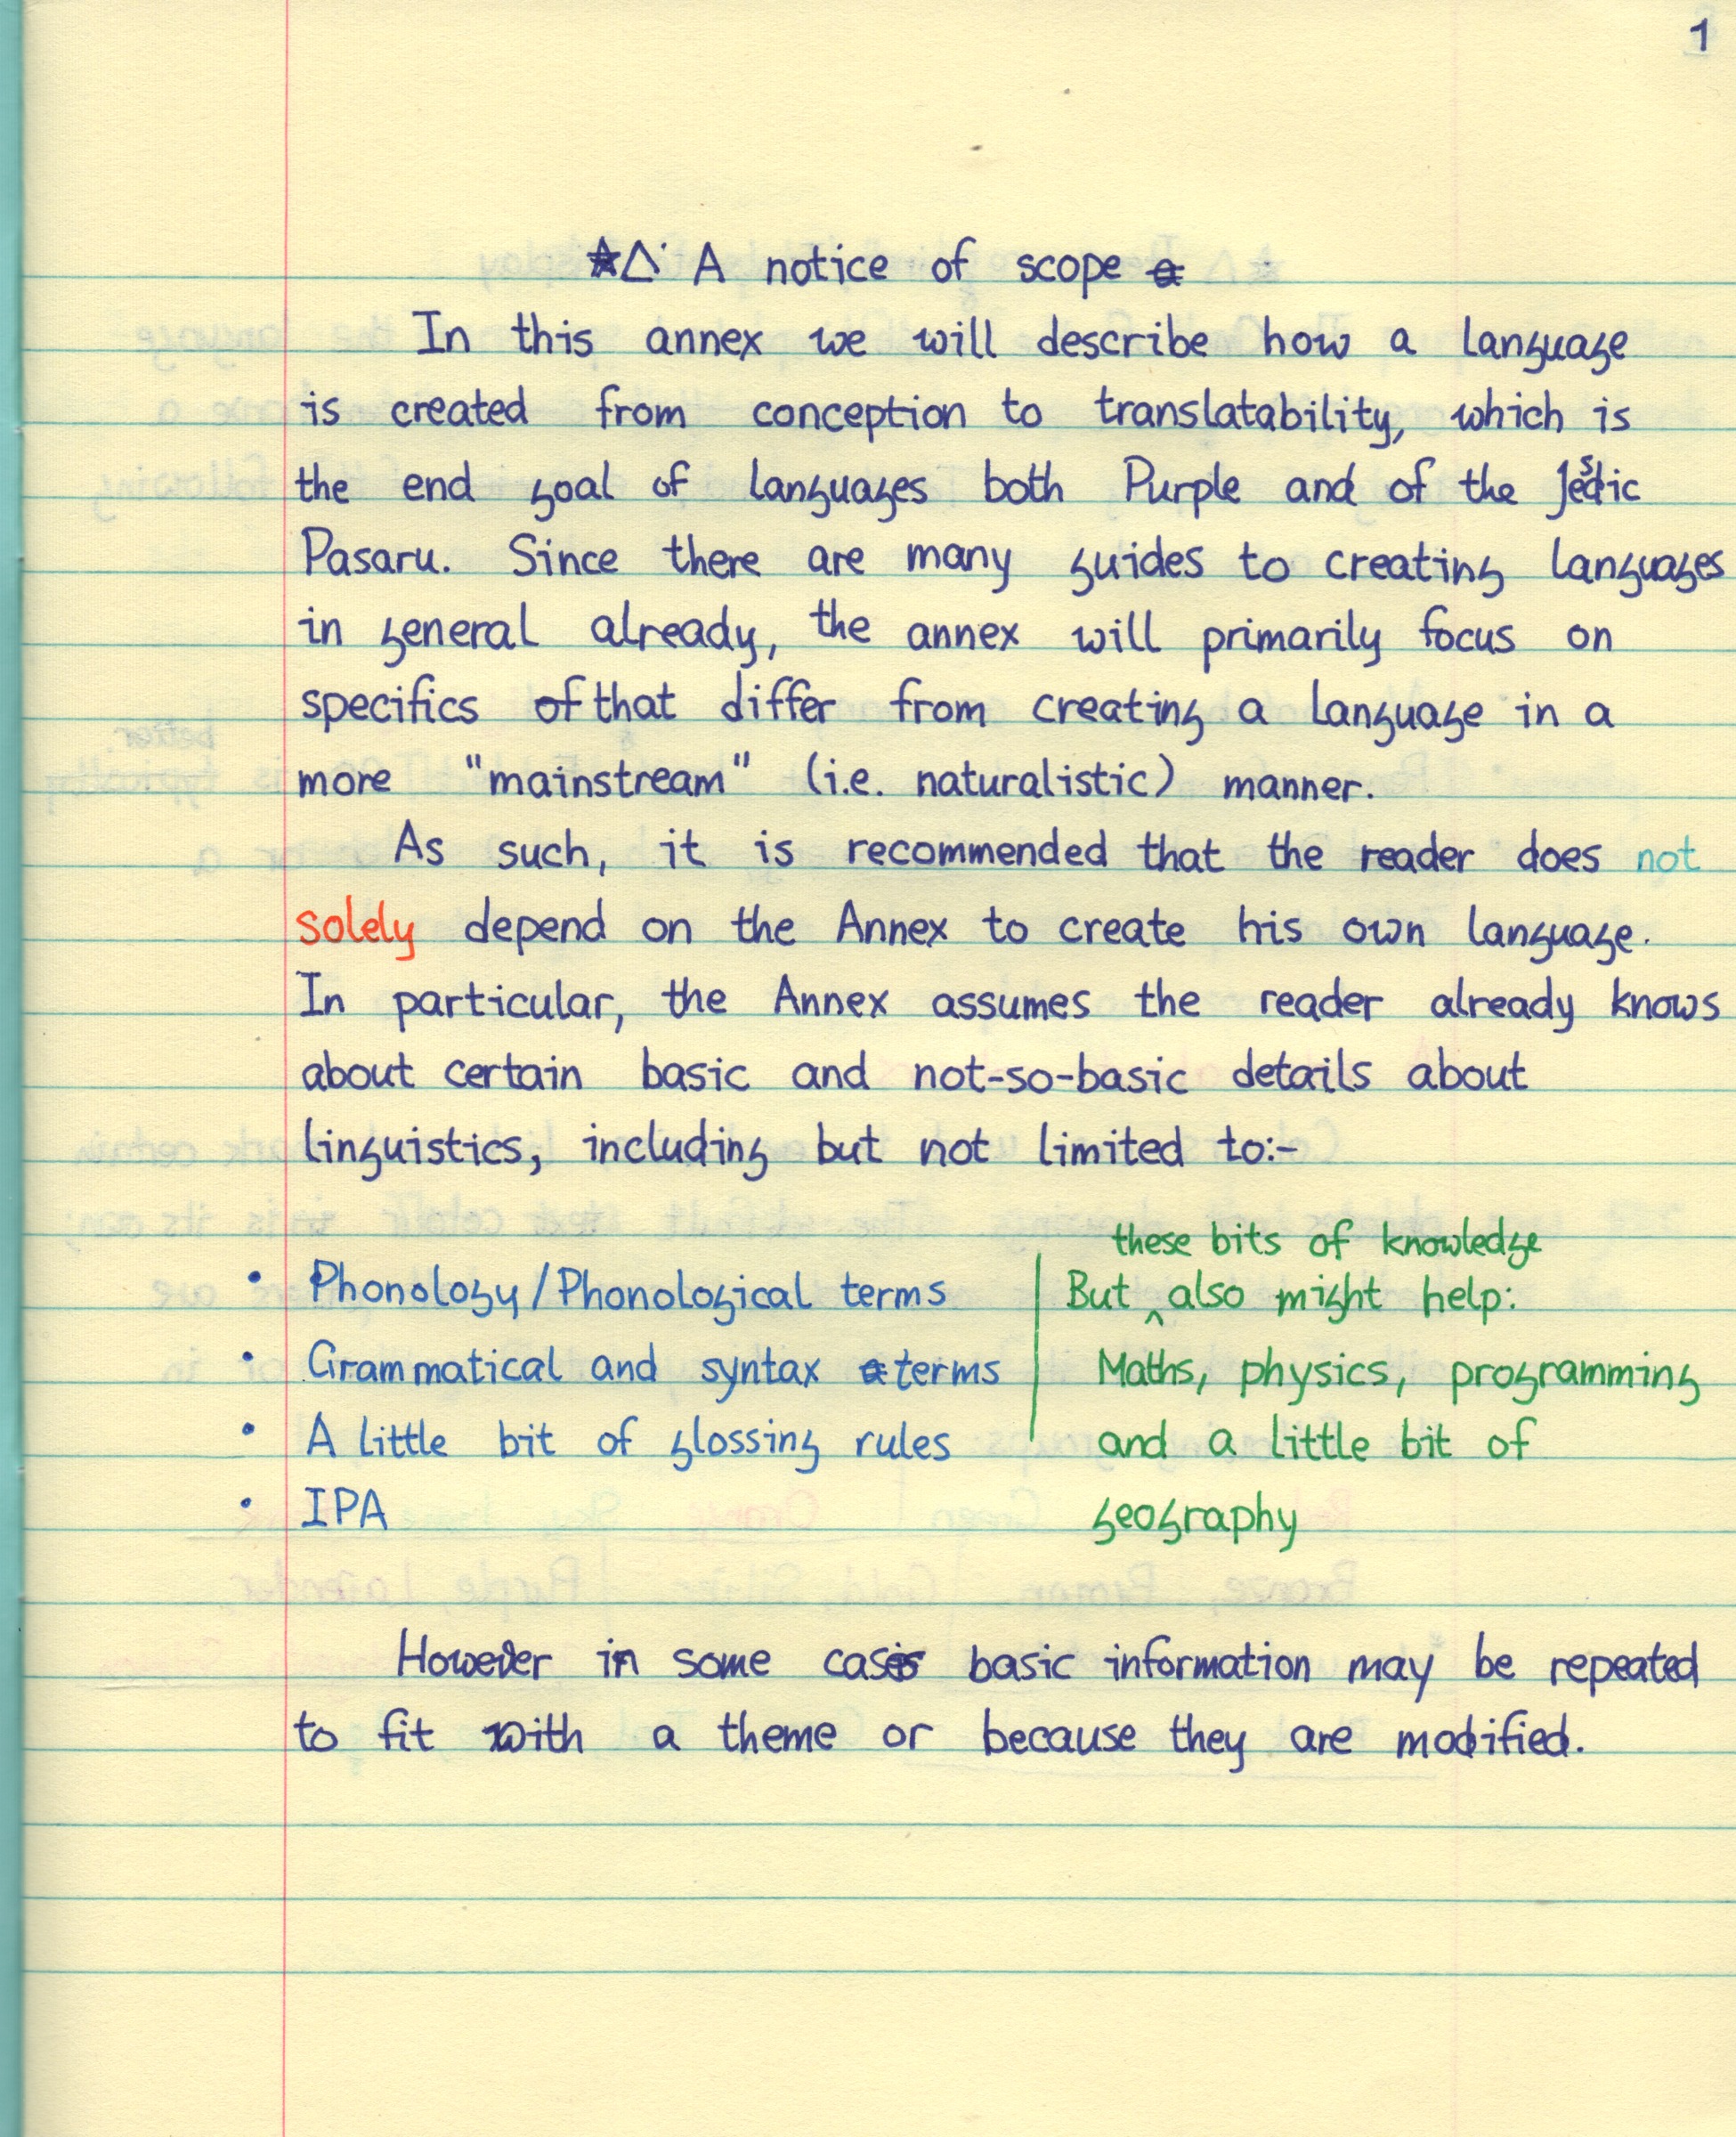 1
★△˙ A notice of scope
In this annex we will describe how a language
is created from conception to translatability, which is
the end goal of languages both Purple and of the
Pasaru. Since there are many guides to creating languages
in general already, the annex will primarily focus on
specifics of that differ from creating a language in a
more "mainstream" (i.e. naturalistic) manner.
As such, it is recommended that the reader does not
solely depend on the Annex to create his own language.
In particular, the Annex assumes the reader already knows
about certain basic and not-so-basic details about
linguistics, including but not limited to:-
• Phonology/Phonological terms
• Grammatical and syntax terms
• A little bit of glossing rules
• IPA
these bits of knowledge
But ^ also might help:
Maths, physics, programming
and a little bit of
geography
However in some cases basic information may be repeated
to fit with a theme or because they are modified.